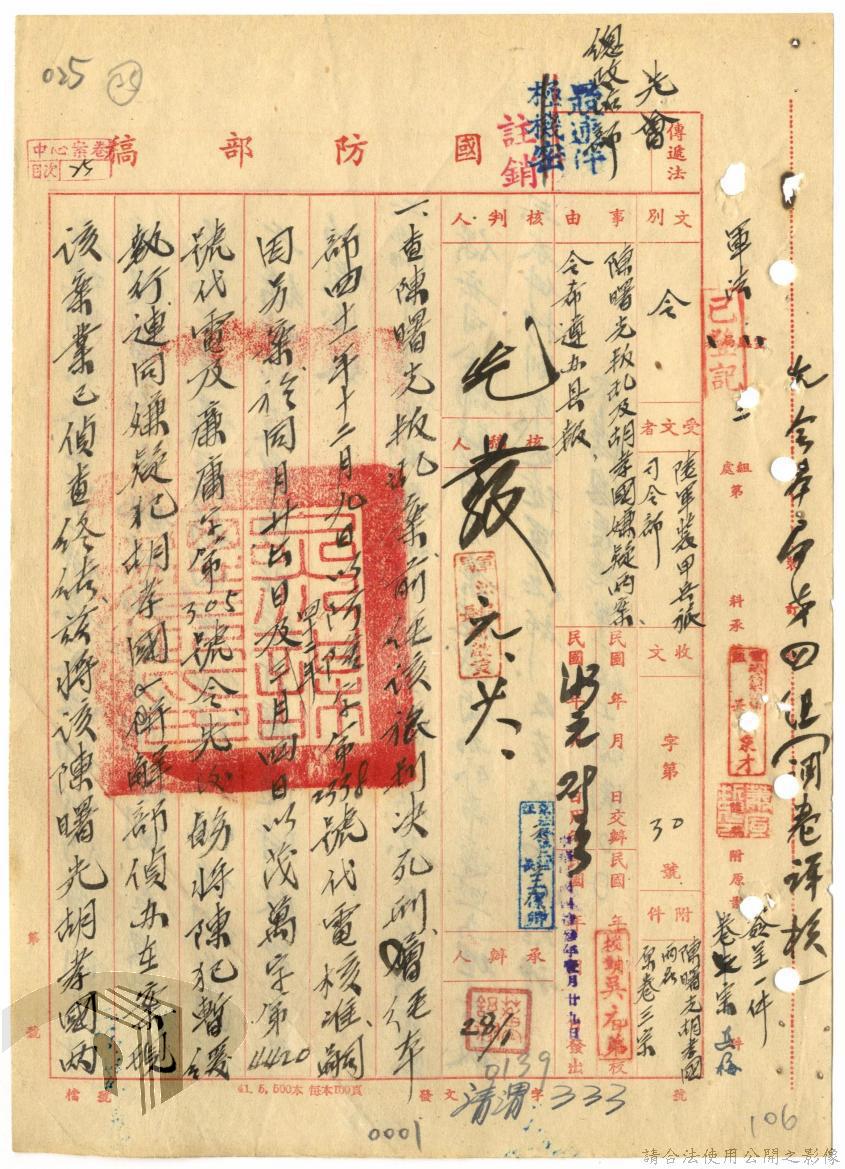 025
25
先會
總政治部
最速件
極機密
註銷
國防部稿
中心案卷
目次 25
傳遞法
軍法
已登記
處第
組
科承
文別
令
受文者
陸軍裝甲兵旅
司令部
收文
字第
30
號
附件
陳曙光胡孝國
兩名
原卷三宗
事由
陳曙光叛乱及胡孝國嫌疑兩案
令希遵办具報、
民國 年 月 日交辦
民國 年
發出
核判人
核稿人
承辦人
28/1
一、查陳曙光叛乱案前經該旅判决死刑、曾經本
部四十一年十二月九日以防隆字第2538號代電核准、嗣
因另案於同月廿六日及四十二年元月四日以茂萬字第4420
號代電及廉庸字第305號令先後飭將陳犯暫緩
執行連同嫌疑犯胡孝國一併解部偵办在案現
該案業已偵查終結、茲將該陳曙光胡孝國兩
第 號
檔號
41.5.500本 每本100頁
發文
清渭
字
0139
333
號
0001
106
請合法使用公開之影像